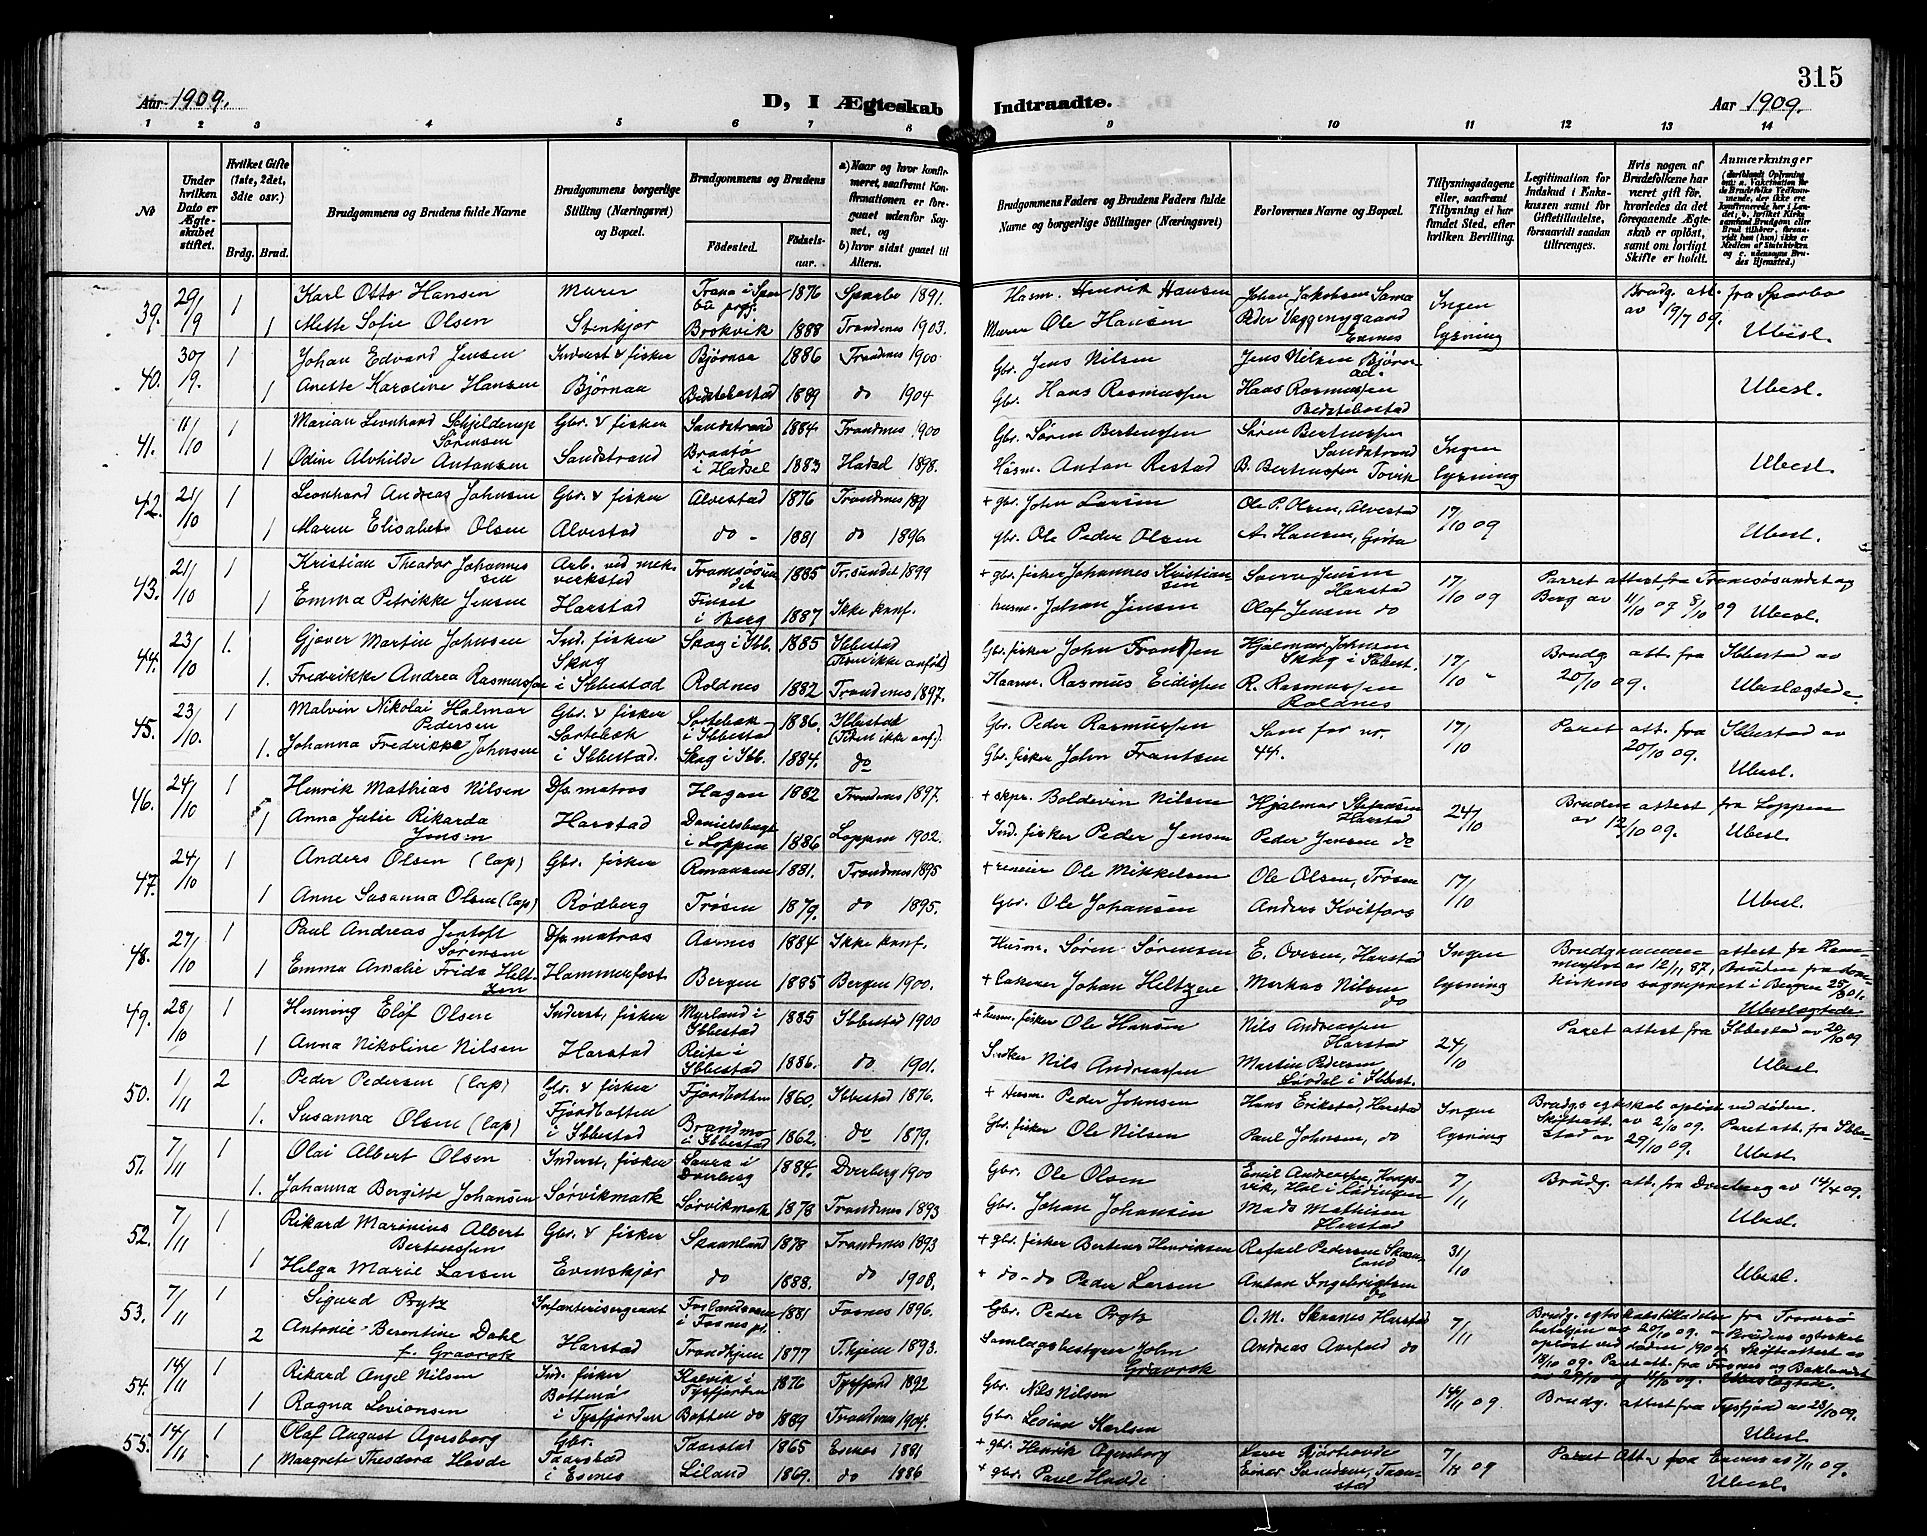 315
Aar 1909. D, I Ægteskab Indtraadte. Aar 1909.
1 2 3 4 5 6 7 8 9 10 11 12 13 14
No
Under hvilken Dato er Ægteskabet stiftet.
Hvilket Gifte (1ste, 2det, 3die osv.)
Brdg. Brud.
Brudgommens og Brudens fulde Navne
Brudgommens borgerlige Stilling (Næringsvei) og Bopæl.
Brudgommens og Brudens
Fødested. Fødselsaar.
a) Naar og hvor konfirmeret, saafremt Konfirmationen er foregaaet udenfor Sognet, og b) hvor sidst gaaet til Alters.
Brudgommens Faders og Brudens Faders fulde Navne og borgerlige Stillinger (Næringsvei)
Forlovernes Navne og Bopæl.
Tillysningsdagene eller, saafremt Tillysning ei har fundet Sted, efter hvilken Bevilling.
Legitimation for Indskud i Enkekassen samt for Giftetilladelse, forsaavidt saadan tiltrænges.
Hvis nogen af Brudefolkene har været gift før, hvorledes da det foregaaende Ægteskab er opløst, samt om lovligt Skifte er holdt.
Anmærkninger
39. 29/19 1 Karl Otto Hansen Murer 1876 Sparbo 1891. Husm. Henrik Hansen Johan Jakobsen Sama Ingen Brudg. att. fra Sparbo
1 Mette Sofie Olsen Stenkjær Brokvik 1888 Trondenes 1903. Murer Ole Hansen Peder Væggenygaard Evenes lysning av 19/7 09. Ubesl.
40. 30/19. 1 Johan Edvard Jensen Inderst & fisker Bjørnaa 1886 Trondenes 1900 Gbr. Jens Nilsen Jens Nilsen
1 Anette Karoline Hansen Bjørnaa 1889 do 1904 Gbr. Hans Rasmussen Hans Rasmussen Ubesl.
41. 11/10 1 Marian Leonhard Schjelderup Sørensen Gbr. & fisker Sandstrand 1884 Trondenes 1900 Gbr. Søren Berteussen Søren Berteussen Sandstrand Ingen
1 Odine Alvhilde Antonsen Sandstrand i Hadsel 1883 Hadsel 1898. Husm. Anton Restad B. Berteussen Tovik lysning Ubesl.
42. 21/10 1 Leonhard Andreas Johnsen Gbr. & fisker Alvestad 1876 Trondenes 1891 + gbr. John Larsen Ole P. Olsen, Alvestad 17/10 09
1 Maren Elisabet Olsen Alvestad do - 1881 do 1896 gbr. Ole Peder Olsen A. Hansen, Ubesl.
43. 21/10 1 Kristian Theodor Johannessen Arb. ved mek. verksted Tromsøsundet 1885 Tr.sundet 1899 + gbr. fisker Johannes Kristiansen Jensen Harstad 17/10 09 Parret attest fra Tromsøsundet og
1 Emma Petrikke Jensen Harstad i Berg 1887 Ikke konf. husm. Johan Jensen Olaf Jensen do Berg av 11/10 09 8/10 09 Ubesl.
44. 23/10 1. Gjøver Martin Johnsen Ind. fisker Skog i Ibb. 1885 Ibbestad (Tiden ikke anført) Gbr. fisker John Frantsen Hjalmar Johnsen Skog i Ibbest. 17/10 Brudg. att. fra Ibbestad av
1. Fredrikke Andrea Rasmussen Skog i Ibbestad Roldnes 1882 Trondenes 1897. Husm. Rasmus Eidissen R. Rasmussen Roldnes 20/10 09. Ubeslægtede
45. 23/10. 1 Malvin Nikolai Halmar Pedersen Gbr. & fisker i Ibbestad 1886. Ibbestad (Tiden ikke anf.). Gbr. Peder Rasmussen Som for nr. 17/10 Paret att. fra Ibbestad av
1. Johanna Fredrikke Johnsen i Ibbestad. Skog i Ibb. 1884. do Gbr. fisker John Frantsen 44. 20/10 09. Ubesl.
46. 24/10 1 Henrik Mathias Nilsen Dps. matros Hagan 1882 Trondenes 1897. + skpr. Boldevin Nilsen Hjalmar Harstad 24/10 Bruden attest fra Loppen
1 Anna Julie Rikarda Jensen Harstad i Loppen 1886 Loppen 1902. Ind. fisker Peder Jensen Peder Jensen do av 12/10 09. Ubesl.
47. 24/10 1 Anders Olsen (lap) Gbr. fisker 1881. Trondenes 1895 + reneier Ole Mikkelsen Ole Olsen, Trøsen 17/10
1 Anne Susanna Olsen (lap) Rødberg Trøsen 1879. do 1895. Gbr. Ole Johansen Anders Kvitfors Ubesl.
48. 27/10 1 Paul Andreas Jentoft Sørensen Dps. matros Aarnes 1884 Ikke konf. Husm. Søren Sørensen E. Oversen, Harstad Ingen Brudgommen attest fra Hammerfest av 12/11 87, Bruden fra
1 Emma Amalie Frida Heltzen Hammerfest Bergen 1885 Bergen 1900. + Johan Heltzen Markus Nilsen do lysning kirkens sogneprest i Bergen Ubeslægtede
49. 28/10 1 Henning Elof Olsen Inderst, fisker Myrland i Ibbestad 1885 Ibbestad 1900 + husm. fisker Ole Hansen Nils Andreassen Harstad 24/10 Paret attest fra Ibbestad av 20/10 09
1 Anna Nikoline Nilsen Harstad i Ibbestad 1886. do 1901. Nils Andreassen Martin Pedersen i Ibbest. Ubesl.
50. 1/11 2 Peder Pedersen (lap) Gbr. & fisker Fjordbotten 1860. Ibbestad 1876. + Husm. Peder Johnsen Hans Erikstad, Harstad Ingen Brudg.s egteskab opløst ved døden.
1. Susanna Olsen (lap) Fjordbotten i Ibbestad Brandmo i Ibbestad 1862. do 1879. Gbr. fisker Ole Nilsen Paul Johnsen, do lysning Skifteatt. av 2/10 09. Paret att. fra Ibbestad av 29/10 09. Ubesl.
51. 7/11 1 Olai Albert Olsen Inderst, fisker i Dverberg 1884. Dverberg 1900 Gbr. Ole Olsen Emil Andersen, Kongsvik, Hol i Lødingen 7/11 Brudg. att. fra Dverberg av 14/4 09.
1. Johanna Bergitte Johansen Sørvikmark Sørvikmark 1878 Trondenes 1893 Gbr. Johan Johansen Mads Mathisen Harstad Ubesl.
52. 7/11 1 Rikard Marinius Albert Berteussen Gbr. & fisker Skaanland 1878 Trondenes 1893 + gbr. fisker Berteus Henriksen Rafael Pedersen Skaanland 31/10
1 Helga Marie Larsen Evenskjær do 1888. do 1908. + do - do Peder Larsen Anton Ingebrigtsen do Ubesl.
53. 7/11 1 Sigurd Brytz Infanterisergeant i Fosnes pr. 1881 Fosnes 1896. Gbr. Peder Brytz O. M. Skaanes Harstad 7/11 Brudg. egteskabstilladelse fra Tromsø bataljon av 20/10 09. - Brudens egteskab
2 Antonie Berentine Dahl f. Graavok Harstad Trondhjem 1877 T.hjem 1893. Samlagsbestyrer John Graavok Andreas do opløst ved døden 1904. Skifteattest av 18/10 09. Paret att. fra Fosnes og Baklandet av 29/10 og 14/10 09. Ubeslægtede.
54. 14/11 1 Rikard Angel Nilsen Ind. fisker i Tysfjorden 1876 Tysfjord 1892 Gbr. Nils Nilsen 14/11 09 Brudg. attest fra Tysfjord av 23/10 09.
1 Ragna Levionsen i Tysfjorden Botten do 1889 Trondenes 1904. Gbr. Karlsen Ubesl.
55. 14/11 1 Olaf August Agersborg Gbr. Taarstad 1865 Evenes 1881 + gbr. Henrik Agersborg 7/11 09 Paret att. fra Evenes av 7/11 09.
1 Margrete Theodora Hovde Taarstad i Evenes Liland 1869. do 1886 + gbr. Paul Hovde Taarstad Ubesl.